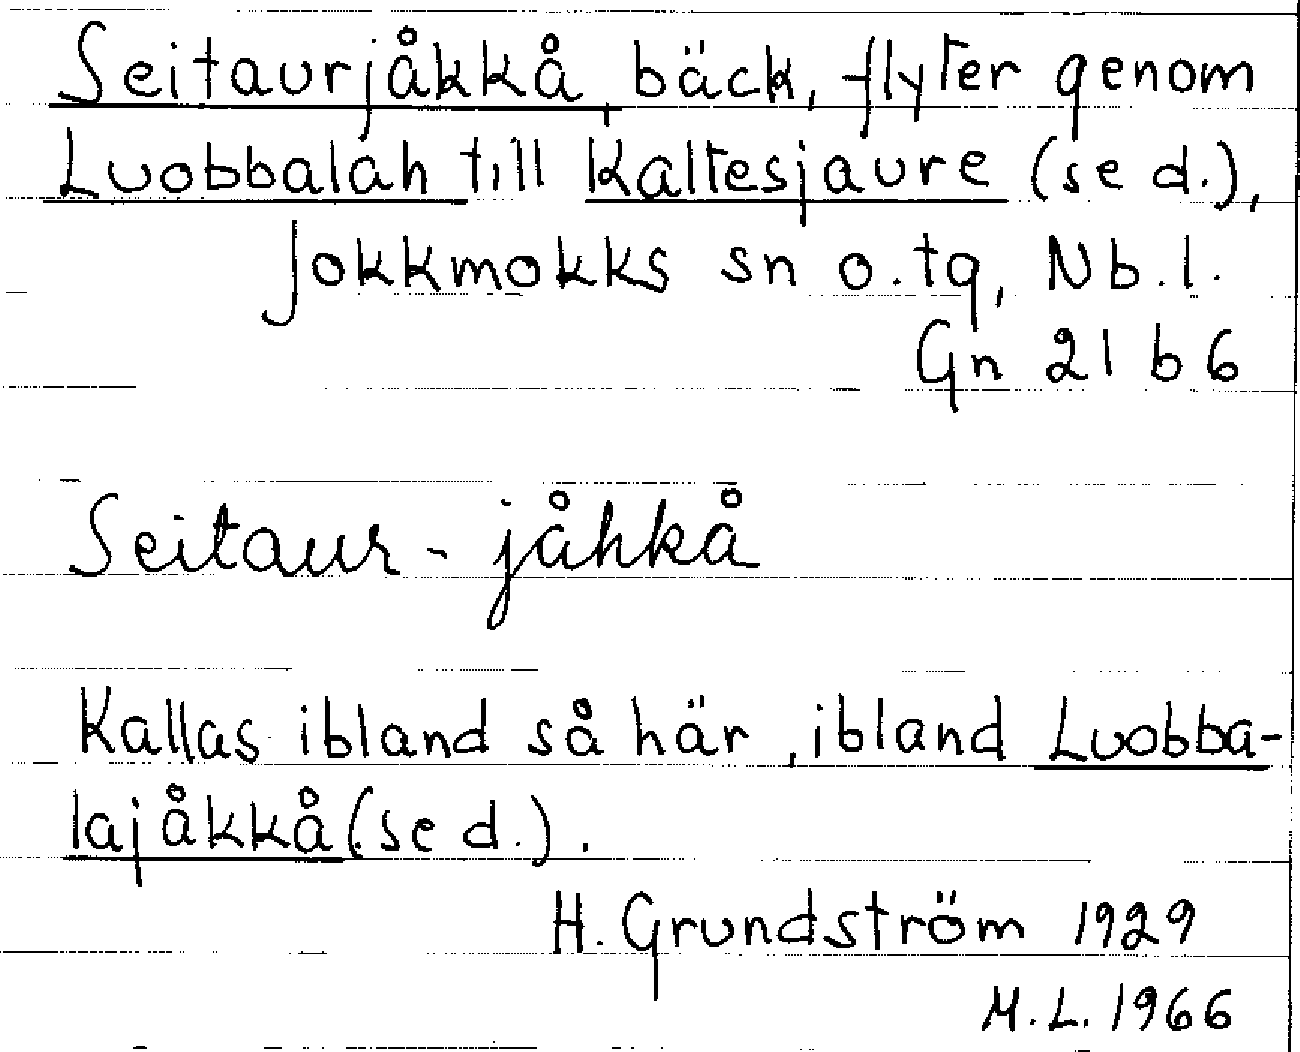 Seitaurjåkkå, bäck, flyter genom
Luobbalah till Kaltesjaure (se d.),
Jokkmokks sn o. tg, Nb. l.
Gn 21 b 6
Seitaur - jåhkå
Kallas ibland så här, ibland Luobba-
lajåkkå (se d.).
H. Grundström 1929
M.L. 1966